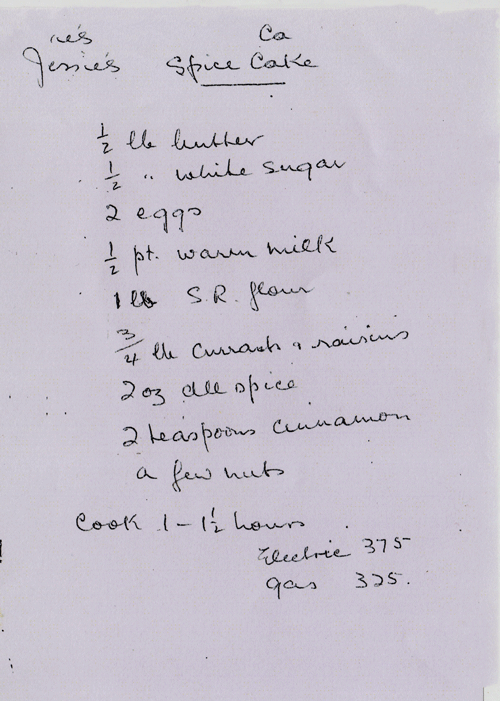 ie's Ca
Jessie's Spice Cake
1/2 lb butter
1/2 " white sugar
2 eggs
1/2 pt. warm milk
1 lb S.R. flour
3/4 lb currants & raisins
2 oz all spice
2 teaspoons cinnamon
a few nuts
Cook 1 - 1 1/2 hours
Electric 375
gas 325.